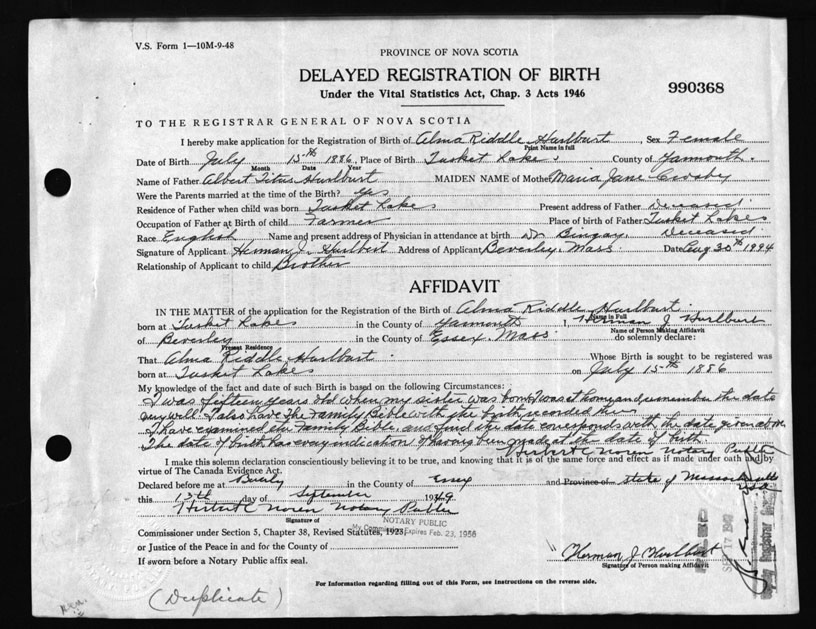 V.S. Form 1—10M-9-48
PROVINCE OF NOVA SCOTIA
DELAYED REGISTRATION OF BIRTH
990368
Under the Vital Statistics Act, Chap. 3 Acts 1946
TO THE REGISTRAR GENERAL OF NOVA SCOTIA
I hereby make application for the Registration of Birth of Alma Riddle Hurlburt, Sex Female
Print Name in full
Date of Birth July 15th 1886, Place of Birth Tusket Lakes, County of Yarmouth.
Month Date Year
Name of Father Albert Titus Hurlburt MAIDEN NAME of Mother Maria Jane Crosby
Were the Parents married at the time of the Birth? Yes
Residence of Father when child was born Tusket Lakes Present address of Father Deceased
Occupation of Father at Birth of child Farmer Place of birth of Father Tusket Lakes
Race English Name and present address of Physician in attendance at birth Dr Bingay. Deceased.
Signature of Applicant Herman J. Hurlbert Address of Applicant Beverly, Mass. Date Aug 30th 1994
Relationship of Applicant to child Brother
AFFIDAVIT
IN THE MATTER of the application for the Registration of Birth of Alma Riddle Hurlburt.
Name in Full
born at Tusket Lakes in the County of Yarmouth I, Herman J. Hurlburt
Name of Person Making Affidavit
of Beverley in the County of Essex. Mass. do solemnly declare:
Present Residence
That Alma Riddle Hurlburt. Whose Birth is sought to be registered was
born at Tusket Lakes on July 15th 1886
My knowledge of the fact and date of such Birth is based on the following Circumstances:
I was fifteen years old when my sister was born. I was at home and remember the date
very well. I also have the Family Bible with the birth recorded
I have examined the Family Bible, and find the date corresponds with the date given above.
The date of birth has every indication of having been made at the date of birth.
Herbert C Noren Notary Public
I make this solemn declaration conscientiously believing it to be true, and knowing that it is of the same force and effect as if made under oath and by
virtue of The Canada Evidence Act.
Declared before me at Beverly in the County of Essex and Province of State of Massachusetts
this 13th day of September 1949
Herbert C Noren Notary Public
Signature of NOTARY PUBLIC
My Commission Expires Feb. 23, 1956
Commissioner under Section 5, Chapter 38, Revised Statutes, 1923,
or Justice of the Peace in and for the County of
If sworn before a Notary Public affix seal.
Herman J Hurlburt
Signature of Person making Affidavit
FILED
For Information regarding filling out of this Form, see instructions on the reverse side.
(Duplicate)